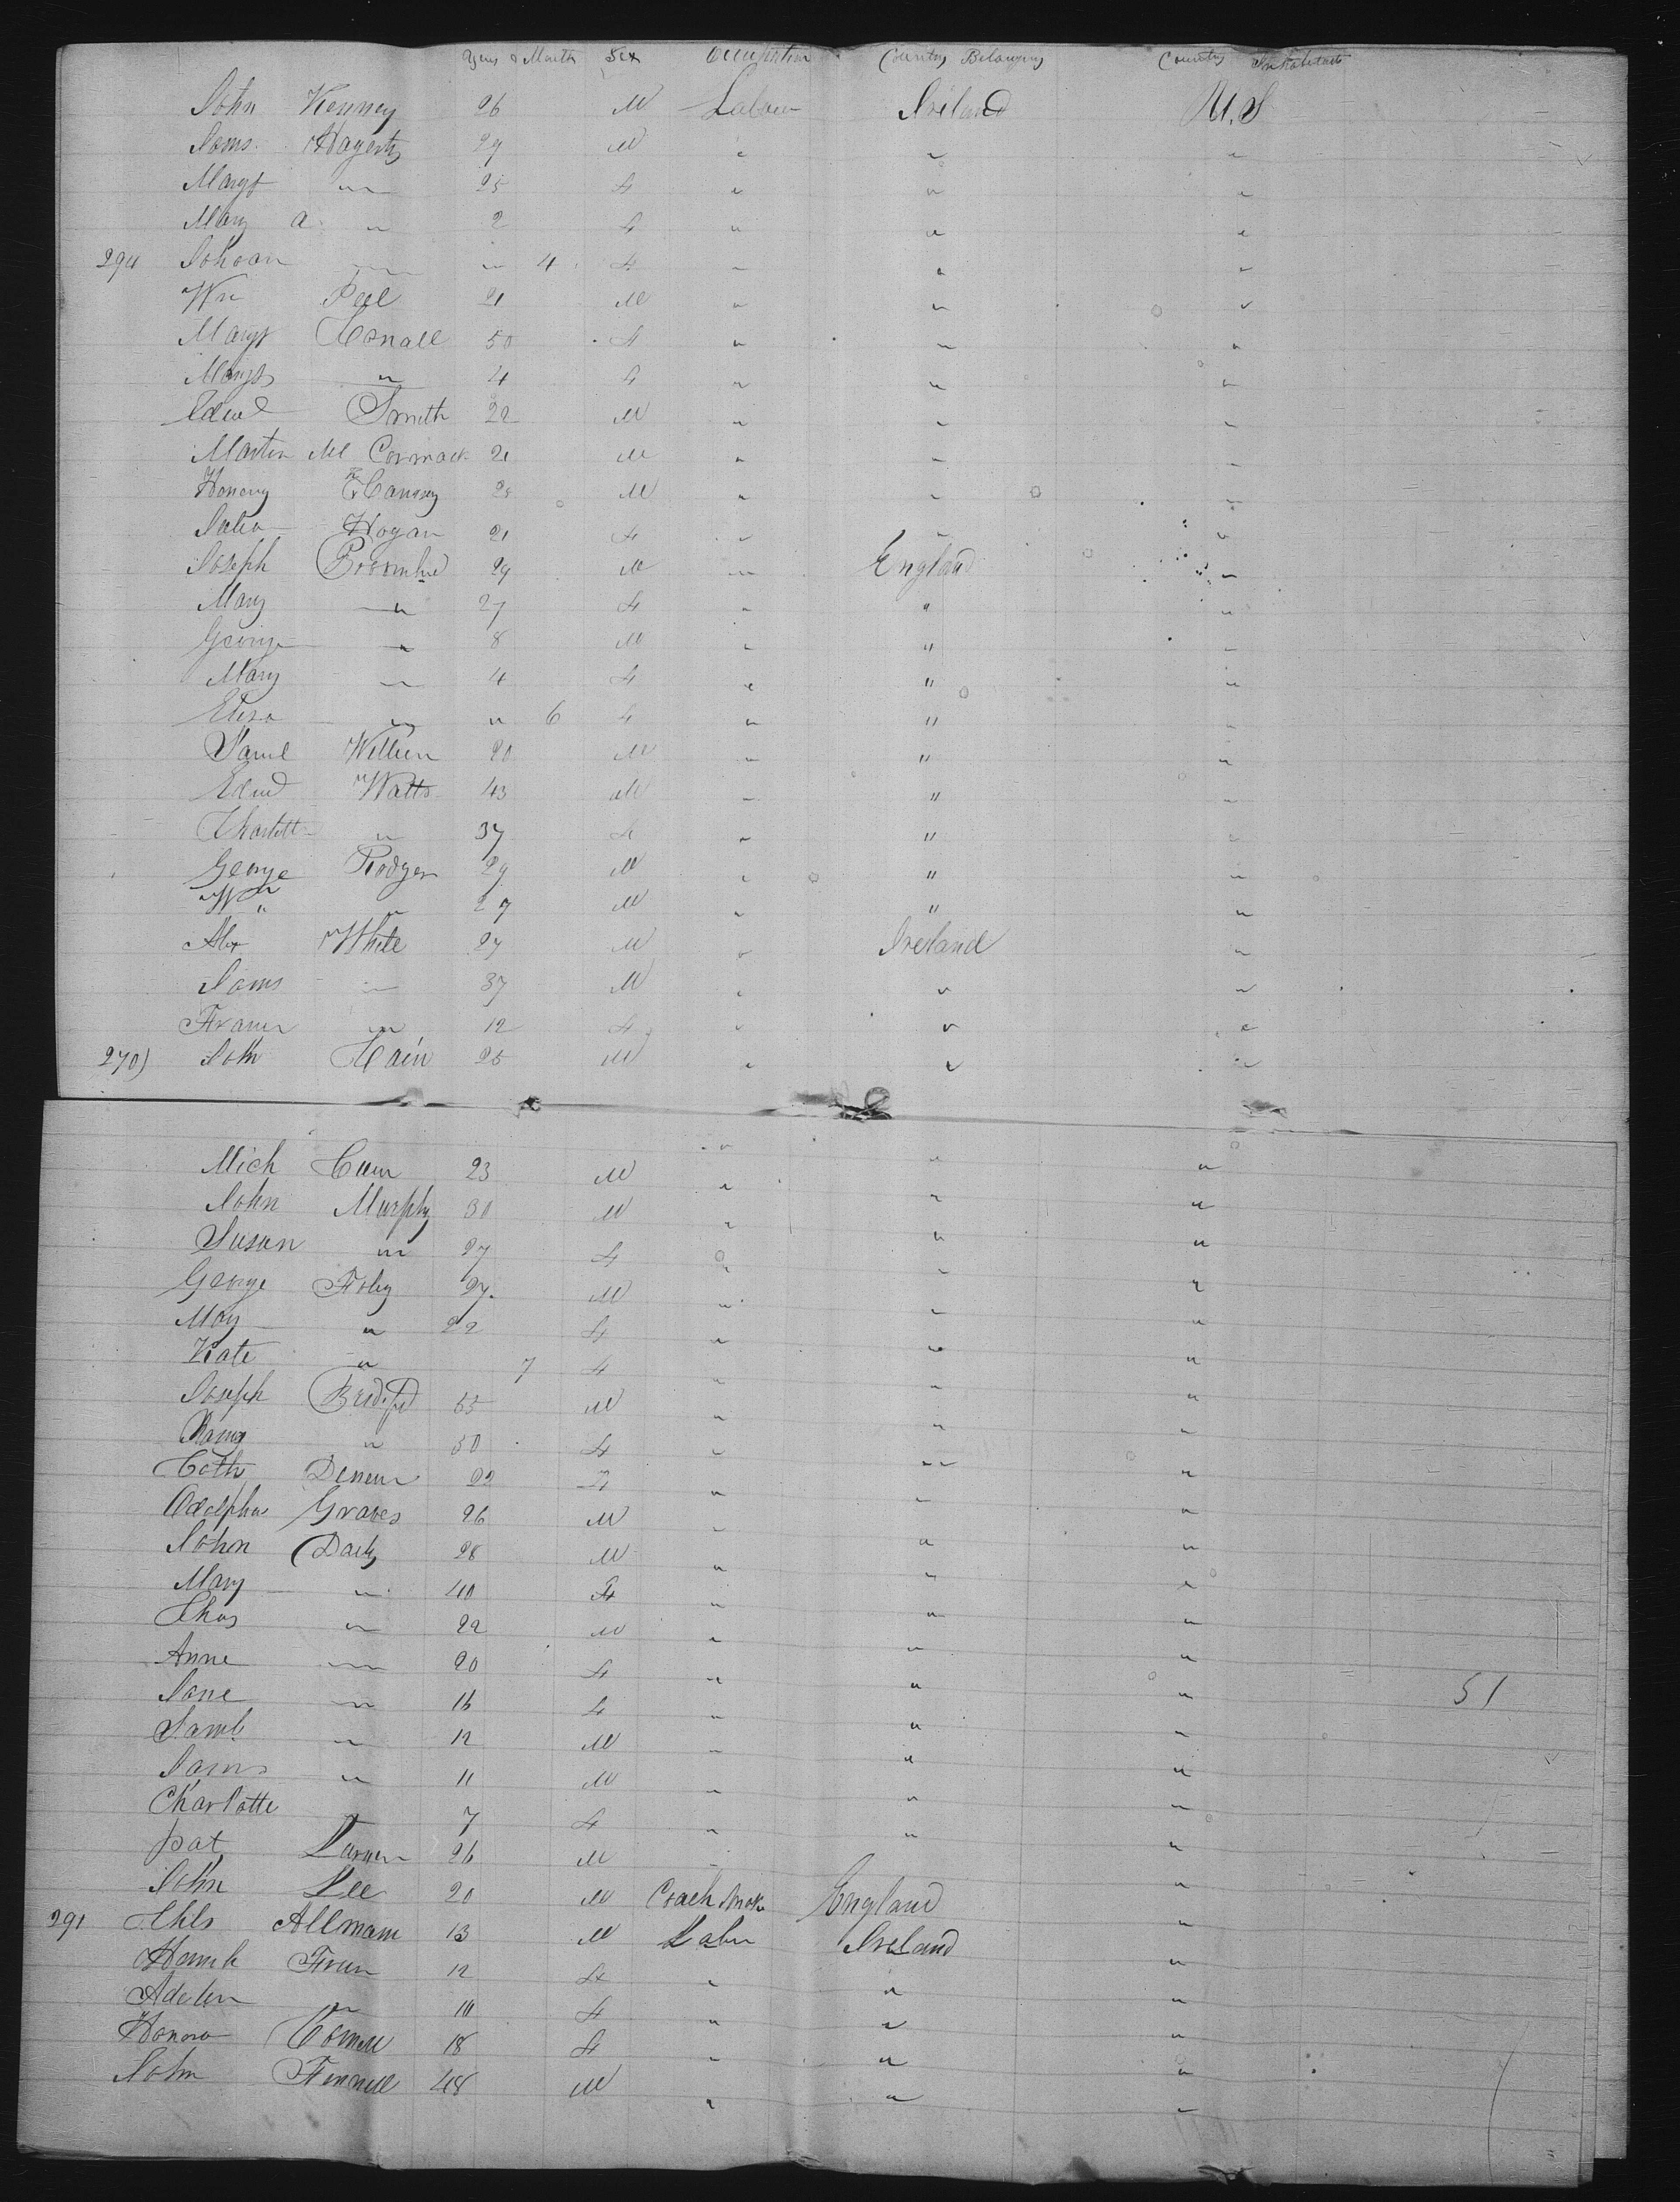 Years & Months Sex Occupation Country Belonging Country Inhabitants
John Kenney 26 M Labour Ireland U.S
Jams. Hagerty 29 M " " "
Margt " 25 F " " "
Mary a " 2 F " " "
294 Johoan " " 4 F " " "
Wm Peel 21 M " " "
Margt Conall 50 F " " "
Margt " 4 F " " "
Edwd Smith 22 M " " "
Martin Mc Cormack 21 M " " "
Honory 28 M " " "
Julia Hogan 21 F " " "
Joseph 29 M " England "
Mary " 27 F " " "
George " 8 M " " "
Mary " 4 F " " "
Eliza " " 6 F " " "
Saml 20 M " " "
Edwd Watts 43 M " " "
Charlott " 37 F " " "
George Rodger 29 M " " "
Wm " 27 M " " "
Alex White 27 M " Ireland "
Jams " 37 M " " "
" 12 F " " "
270) John Cain 25 M " " "
Mich 23 M " " "
John Murphy 30 M " " "
Susan " 27 F " " "
George Foley 27. M " " "
May " 22 F " " "
Kate " 7 F " " "
Joseph 55 M " " "
" 50 F " " "
Cath 22 F " " "
Adolphus Graves 26 M " " "
John Daily 28 M " " "
Mary " 40 F " " "
Thos " 22 M " " "
Anne " 20 F " " "
Jane " 16 F " " " 51
Saml " 12 M " " "
Jams " 11 M " " "
Charlotte " 7 F " " "
pat 26 M " " "
John Lee 20 M Coach Maker England "
291 Allmam 13 M Labur Ireland "
12 F " " "
" 10 F " " "
Honora 18 F " " "
John Fennell 48 M " " "